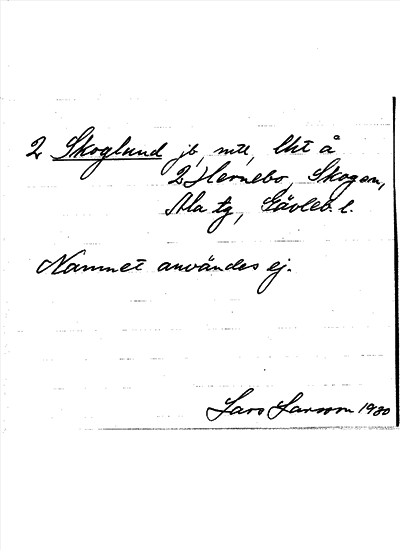 2 Skoglund jb, mtl, lht å
2 Hernebo, Skog sn,
Ala tg, Gävleb. l.
Namnet användes ej.
Lars Larsson 1930